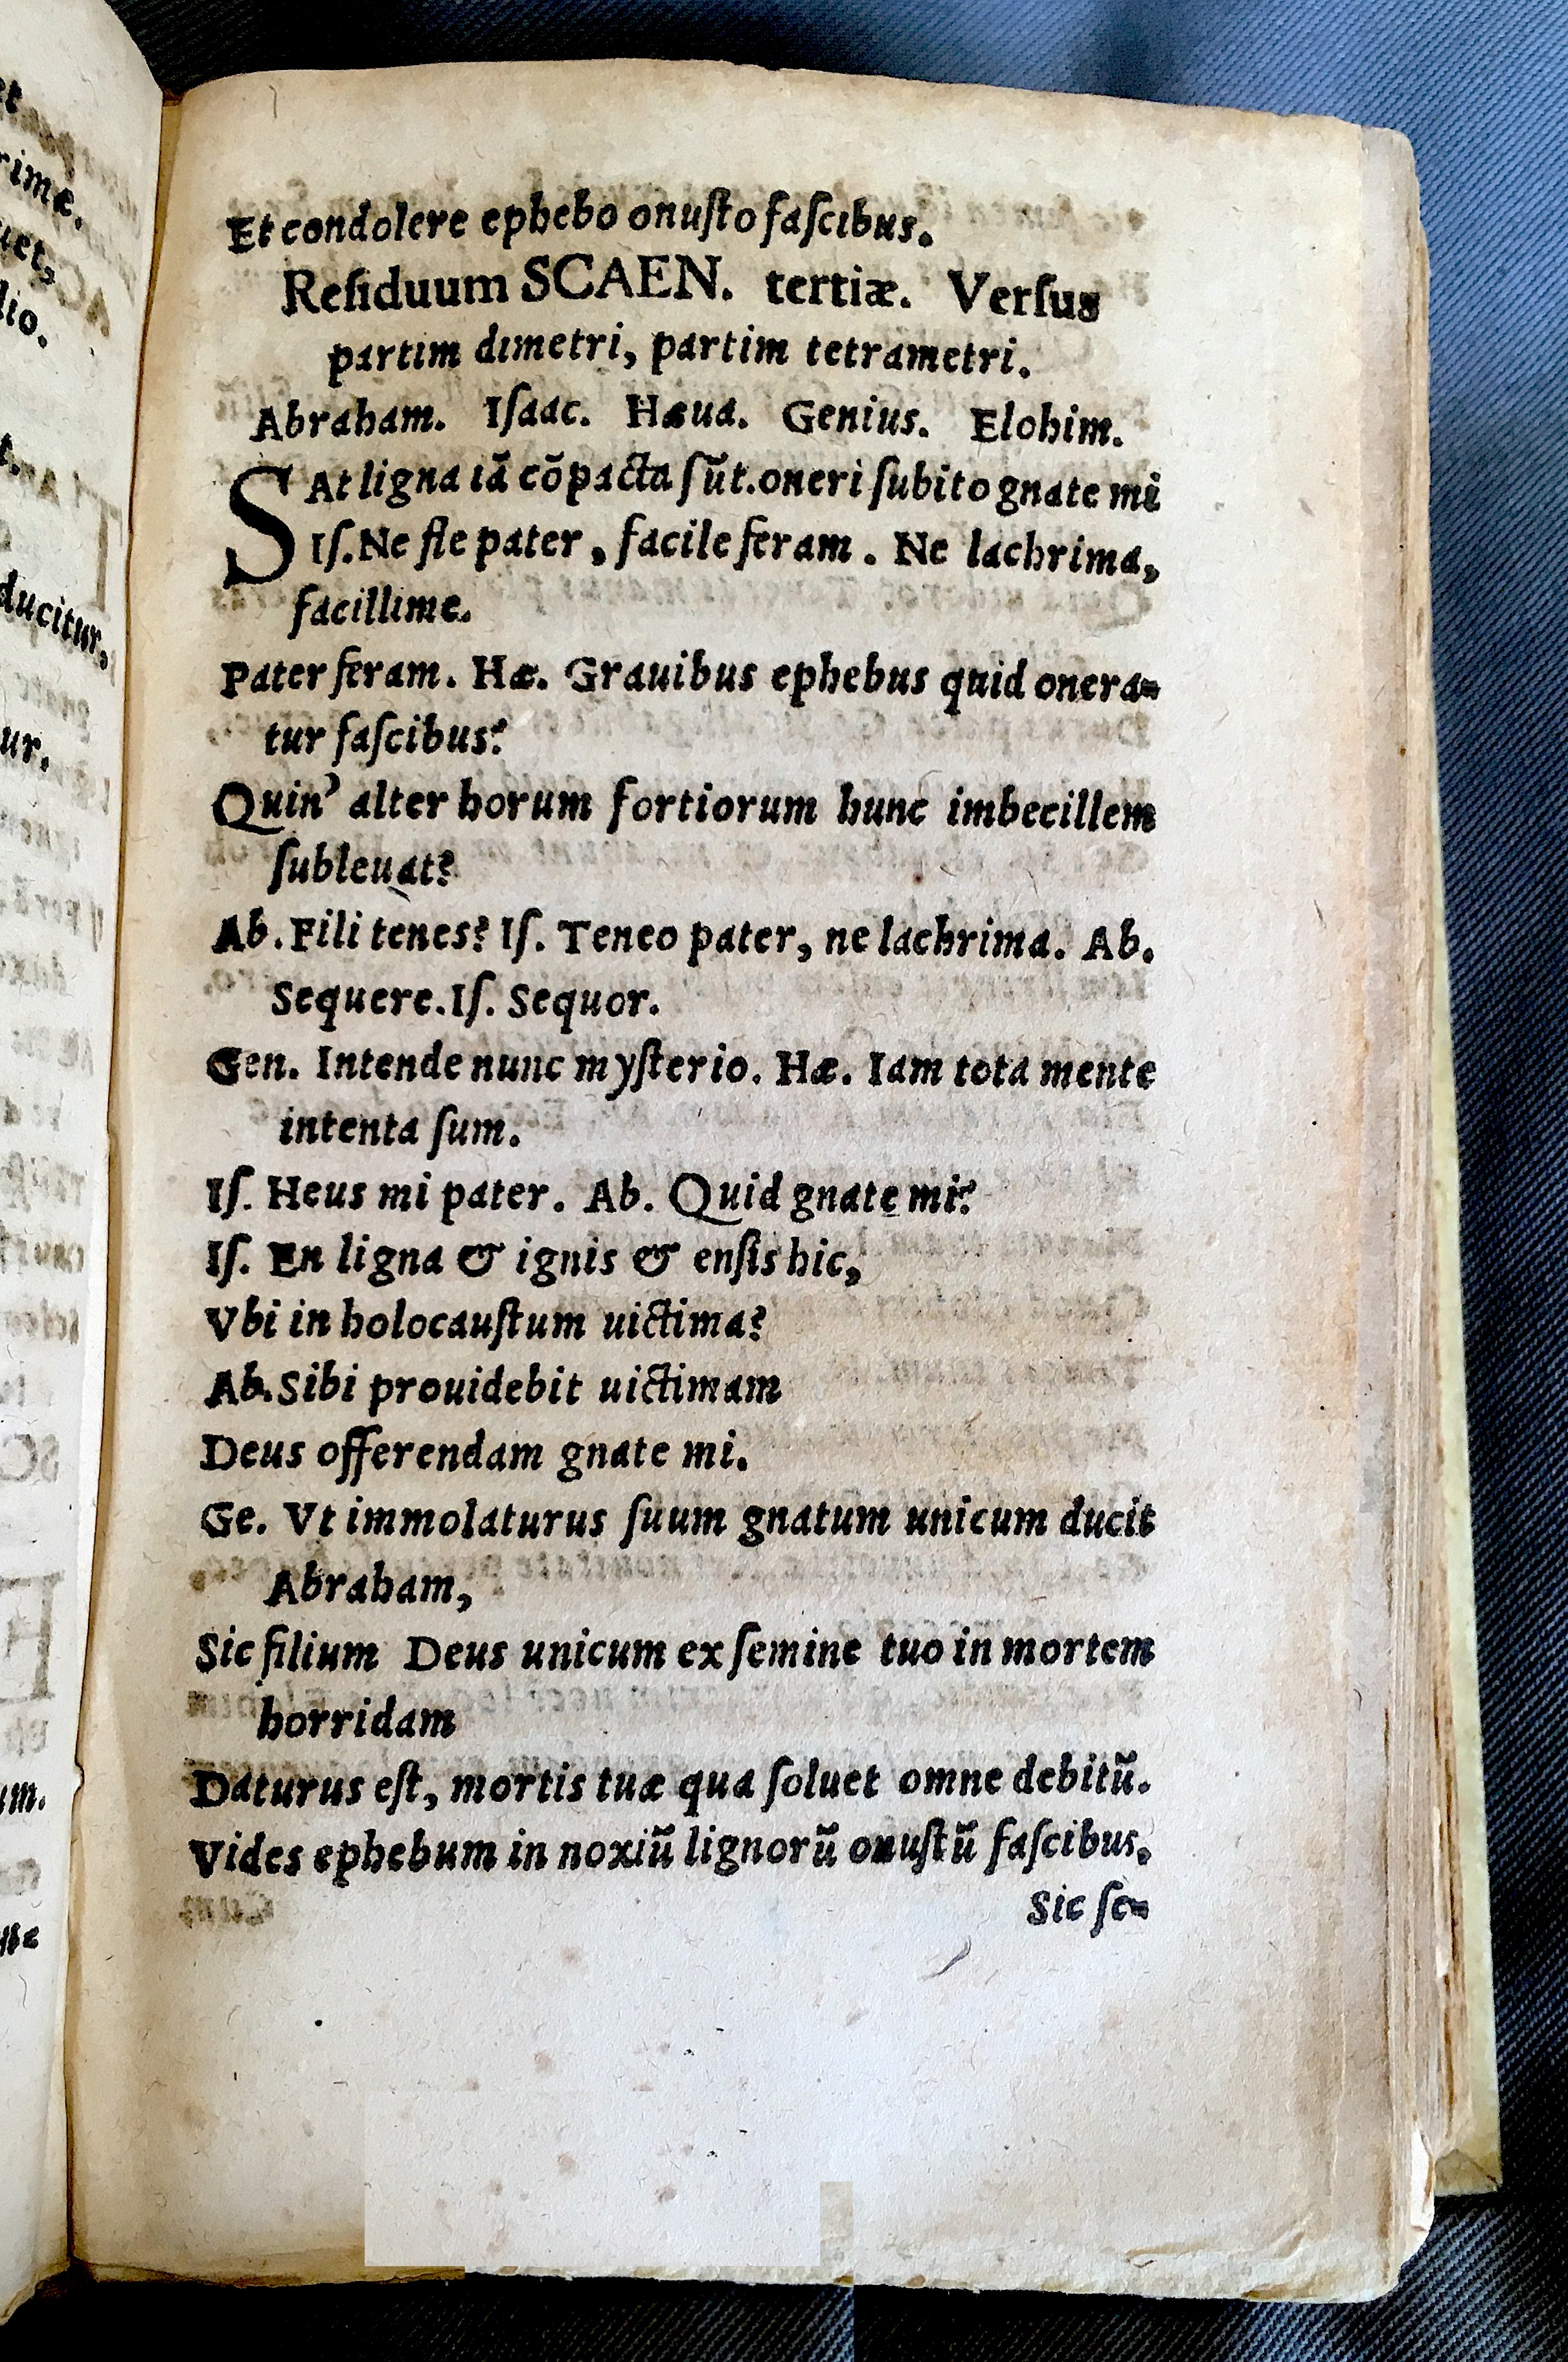 Et condolere ephebo onuſto faſcibus.
Reſiduum SCAEN. tertiæ. Verſus
partim dimetri, partim tetrametri.
Abraham. Iſaac. Hæua. Genius. Elohim.
SAt ligna iã cõpacta ſũt. oneri ſubito gnate mi
Iſ. Ne fle pater, facile feram. Ne lachrima,
facillime.
Pater feram. Hæ. Grauibus ephebus quid onera=
tur faſcibus?
Quin' alter horum fortiorum hunc imbecillem
ſubleuat?
Ab. Fili tenes? Iſ. Teneo pater, ne lachrima. Ab.
Sequere. Iſ. Sequor.
Gen. Intende nunc myſterio. Hæ. Iam tota mente
intenta ſum.
Iſ. Heus mi pater. Ab. Quid gnate mi?
Iſ. En ligna & ignis & enſis hic,
Vbi in holocauſtum uictima?
Ab. Sibi prouidebit uictimam
Deus offerendam gnate mi.
Ge. Vt immolaturus ſuum gnatum unicum ducit
Abraham,
Sic filium Deus unicum ex ſemine tuo in mortem
horridam
Daturus eſt, mortis tuæ qua ſoluet omne debitũ.
Vides ephebum in noxiũ lignorũ onuſtũ faſcibus.
Sic ſe=